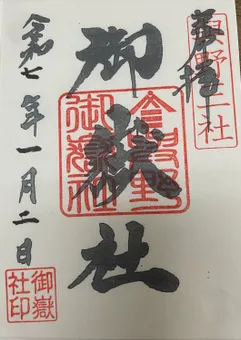 奉拝
御嶽社
令和七年一月二日
御嶽
社印